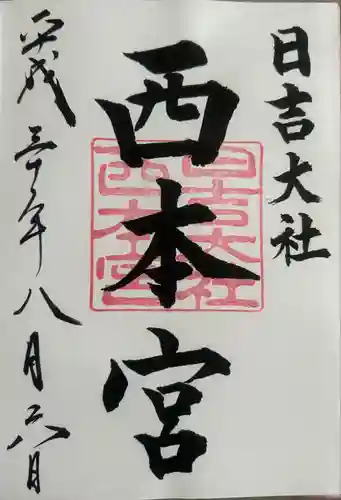 日吉大社
西本宮
平成三十年八月六日
日吉大社
西本宮